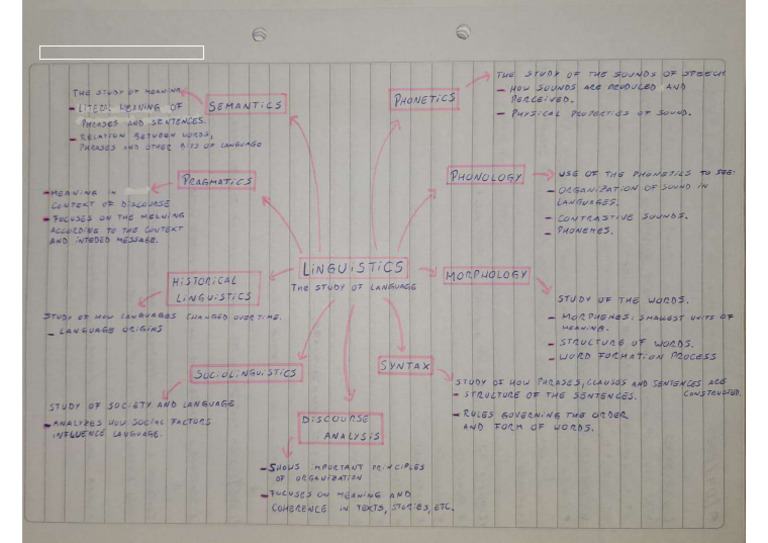 LINGUISTICS
THE STUDY OF LANGUAGE
SEMANTICS
THE STUDY OF MEANING
- LITERAL MEANING OF
PHRASES AND SENTENCES.
- RELATION BETWEEN WORDS,
PHRASES AND OTHER BITS OF LANGUAGE
PRAGMATICS
- MEANING IN
CONTEXT OF DISCOURSE
- FOCUSES ON THE MEANING
ACCORDING TO THE CONTEXT
AND INTEDED MESSAGE.
HISTORICAL
LINGUISTICS
STUDY OF HOW LANGUAGES CHANGED OVERTIME.
- LANGUAGE ORIGINS
SOCIOLINGUISTICS
STUDY OF SOCIETY AND LANGUAGE
- ANALYZES HOW SOCIAL FACTORS
INFLUENCE LANGUAGE.
DISCOURSE
ANALYSIS
- SHOWS IMPORTANT PRINCIPLES
OF ORGANIZATION
- FOCUSES ON MEANING AND
COHERENCE IN TEXTS, STORIES, ETC.
SYNTAX
STUDY OF HOW PHRASES, CLAUSES AND SENTENCES ARE
CONSTRUCTED.
- STRUCTURE OF THE SENTENCES.
- RULES GOVERNING THE ORDER
AND FORM OF WORDS.
MORPHOLOGY
STUDY OF THE WORDS.
- MORPHEMES: SMALLEST UNITS OF
MEANING.
- STRUCTURE OF WORDS.
- WORD FORMATION PROCESS
PHONOLOGY
USE OF THE PHONETICS TO SEE:
- ORGANIZATION OF SOUND IN
LANGUAGES.
- CONTRASTIVE SOUNDS.
- PHONEMES.
PHONETICS
THE STUDY OF THE SOUNDS OF SPEECH
- HOW SOUNDS ARE PRODUCED AND
PERCEIVED.
- PHYSICAL PROPERTIES OF SOUND.